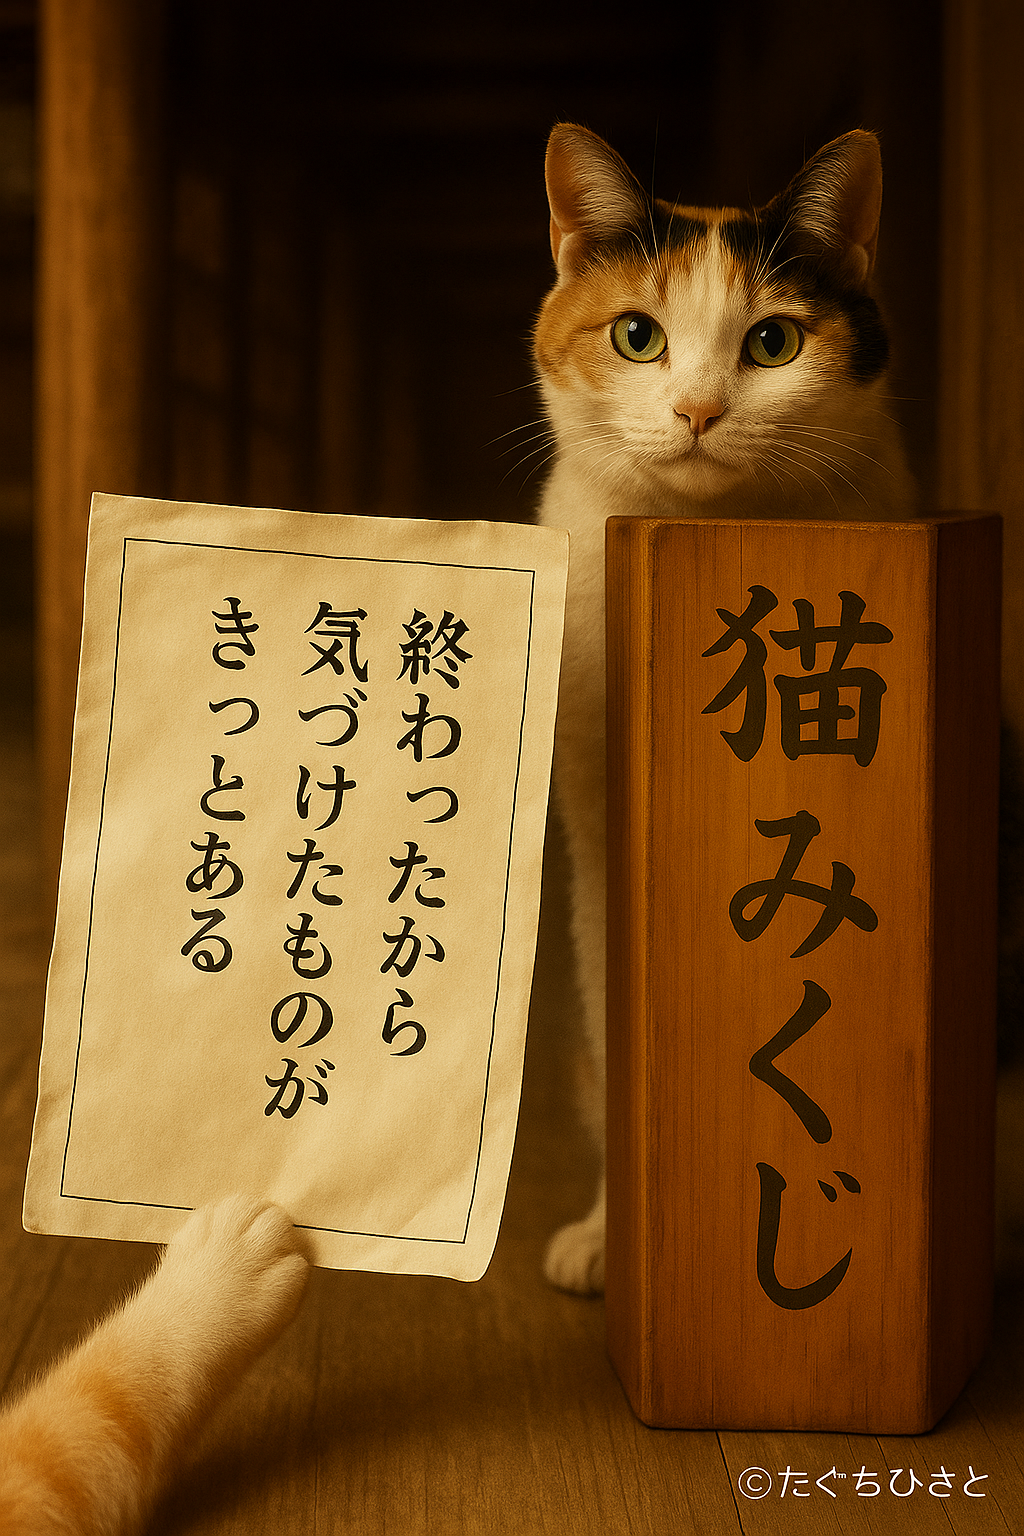 終わったから
気づけたものが
きっとある
猫みくじ
©たぐちひさと